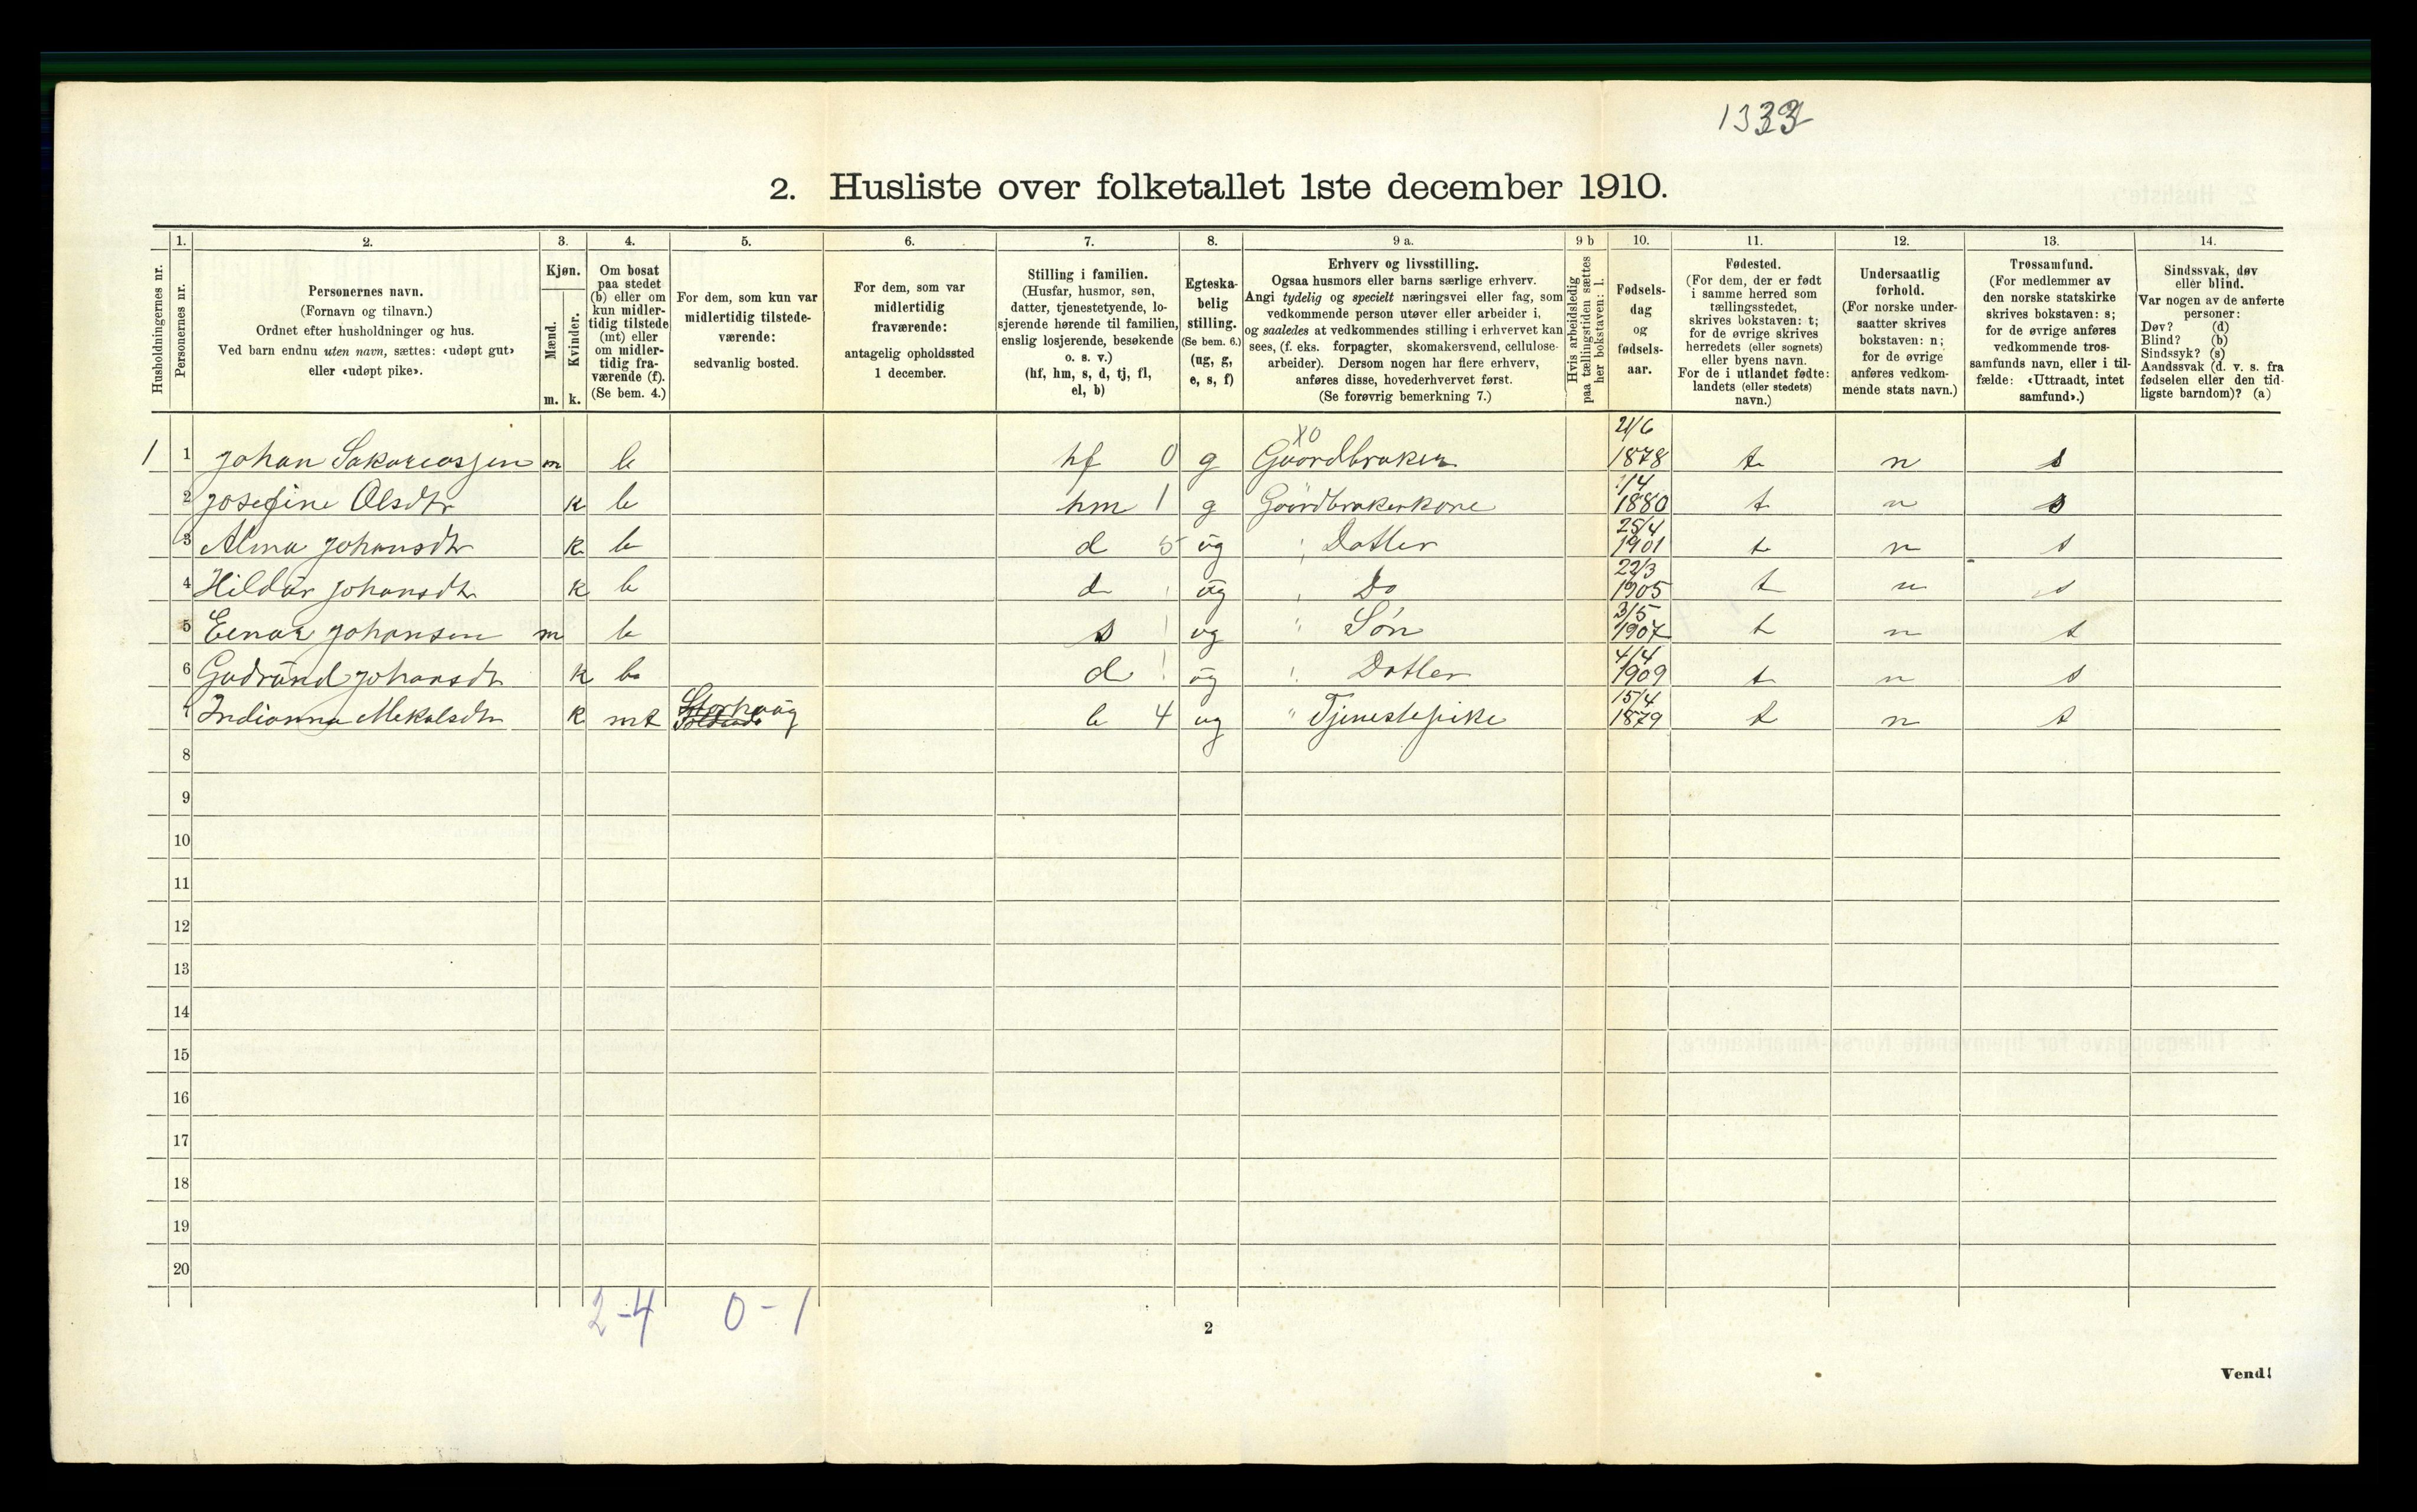 1332
2. Husliste over folketallet 1ste december 1910.
Husholdningernes nr.
1.
Personernes nr.
2.
Personernes navn.
(Fornavn og tilnavn.)
Ordnet efter husholdninger og hus.
Ved barn endnu uten navn, sættes: «udøpt gut»
eller «udøpt pike».
3.
Kjøn.
Mænd.
Kvinder.
m. k.
4.
Om bosat
paa stedet
(b) eller om
kun midler-
tidig tilstede
(mt) eller
om midler-
tidig fra-
værende (f).
(Se bem. 4.)
5.
For dem, som kun var
midlertidig tilstede-
værende:
sedvanlig bosted.
6.
For dem, som var
midlertidig
fraværende:
antagelig opholdssted
1 december.
7.
Stilling i familien.
(Husfar, husmor, søn,
datter, tjenestetyende, lo-
sjerende hørende til familien,
enslig losjerende, besøkende
o. s. v.)
(hf, hm, s, d, tj, fl,
el, b)
8.
Egteska-
belig
stilling.
(Se bem. 6.)
(ug, g,
e, s, f)
9 a.
Erhverv og livsstilling.
Ogsaa husmors eller barns særlige erhverv.
Angi tydelig og specielt næringsvei eller fag, som
vedkommende person utøver eller arbeider i,
og saaledes at vedkommendes stilling i erhvervet kan
sees, (f. eks. forpagter, skomakersvend, cellulose-
arbeider). Dersom nogen har flere erhverv,
anføres disse, hovederhvervet først.
(Se forøvrig bemerkning 7.)
9 b
Hvis arbeidsledig
paa tællingstiden sættes
her bokstaven: l.
10.
Fødsels-
dag
og
fødsels-
aar.
11.
Fødested.
(For dem, der er født
i samme herred som
tællingsstedet,
skrives bokstaven: t;
for de øvrige skrives
herredets (eller sognets)
eller byens navn.
For de i utlandet fødte:
landets (eller stedets)
navn.)
12.
Undersaatlig
forhold.
(For norske under-
saatter skrives
bokstaven: n;
for de øvrige
anføres vedkom-
mende stats navn.)
13.
Trossamfund.
(For medlemmer av
den norske statskirke
skrives bokstaven: s;
for de øvrige anføres
vedkommende tros-
samfunds navn, eller i til-
fælde: «Uttraadt, intet
samfund».)
14.
Sindssvak, døv
eller blind.
Var nogen av de anførte
personer:
Døv? (d)
Blind? (b)
Sindssyk? (s)
Aandssvak (d. v. s. fra
fødselen eller den tid-
ligste barndom)? (a)
1 1 Johan Sakareassen m b hf 0 g X0 Gaardbruker 21/6 1878 t n s
2 Josefine Olsdtr k b hm 1 g Gaardbrukerkone 1/4 1880 t n s
3 Alma Johansdtr k b d 5 ug " Datter 25/4 1901 t n s
4 Hildur Johansdtr k b d ug " Do 22/3 1905 t n s
5 Einar Johansen m b s ug " Søn 3/5 1907 t n s
6 Gudrund Johansdtr k b d ug " Datter 4/4 1909 t n s
7 Indianna Mekalsdtr k mt Storhaug b 4 ug " Tjenestepike 15/4 1879 t n s
8
9
10
11
12
13
14
15
16
17
18
19
20
2-4 0-1
2
Vend!